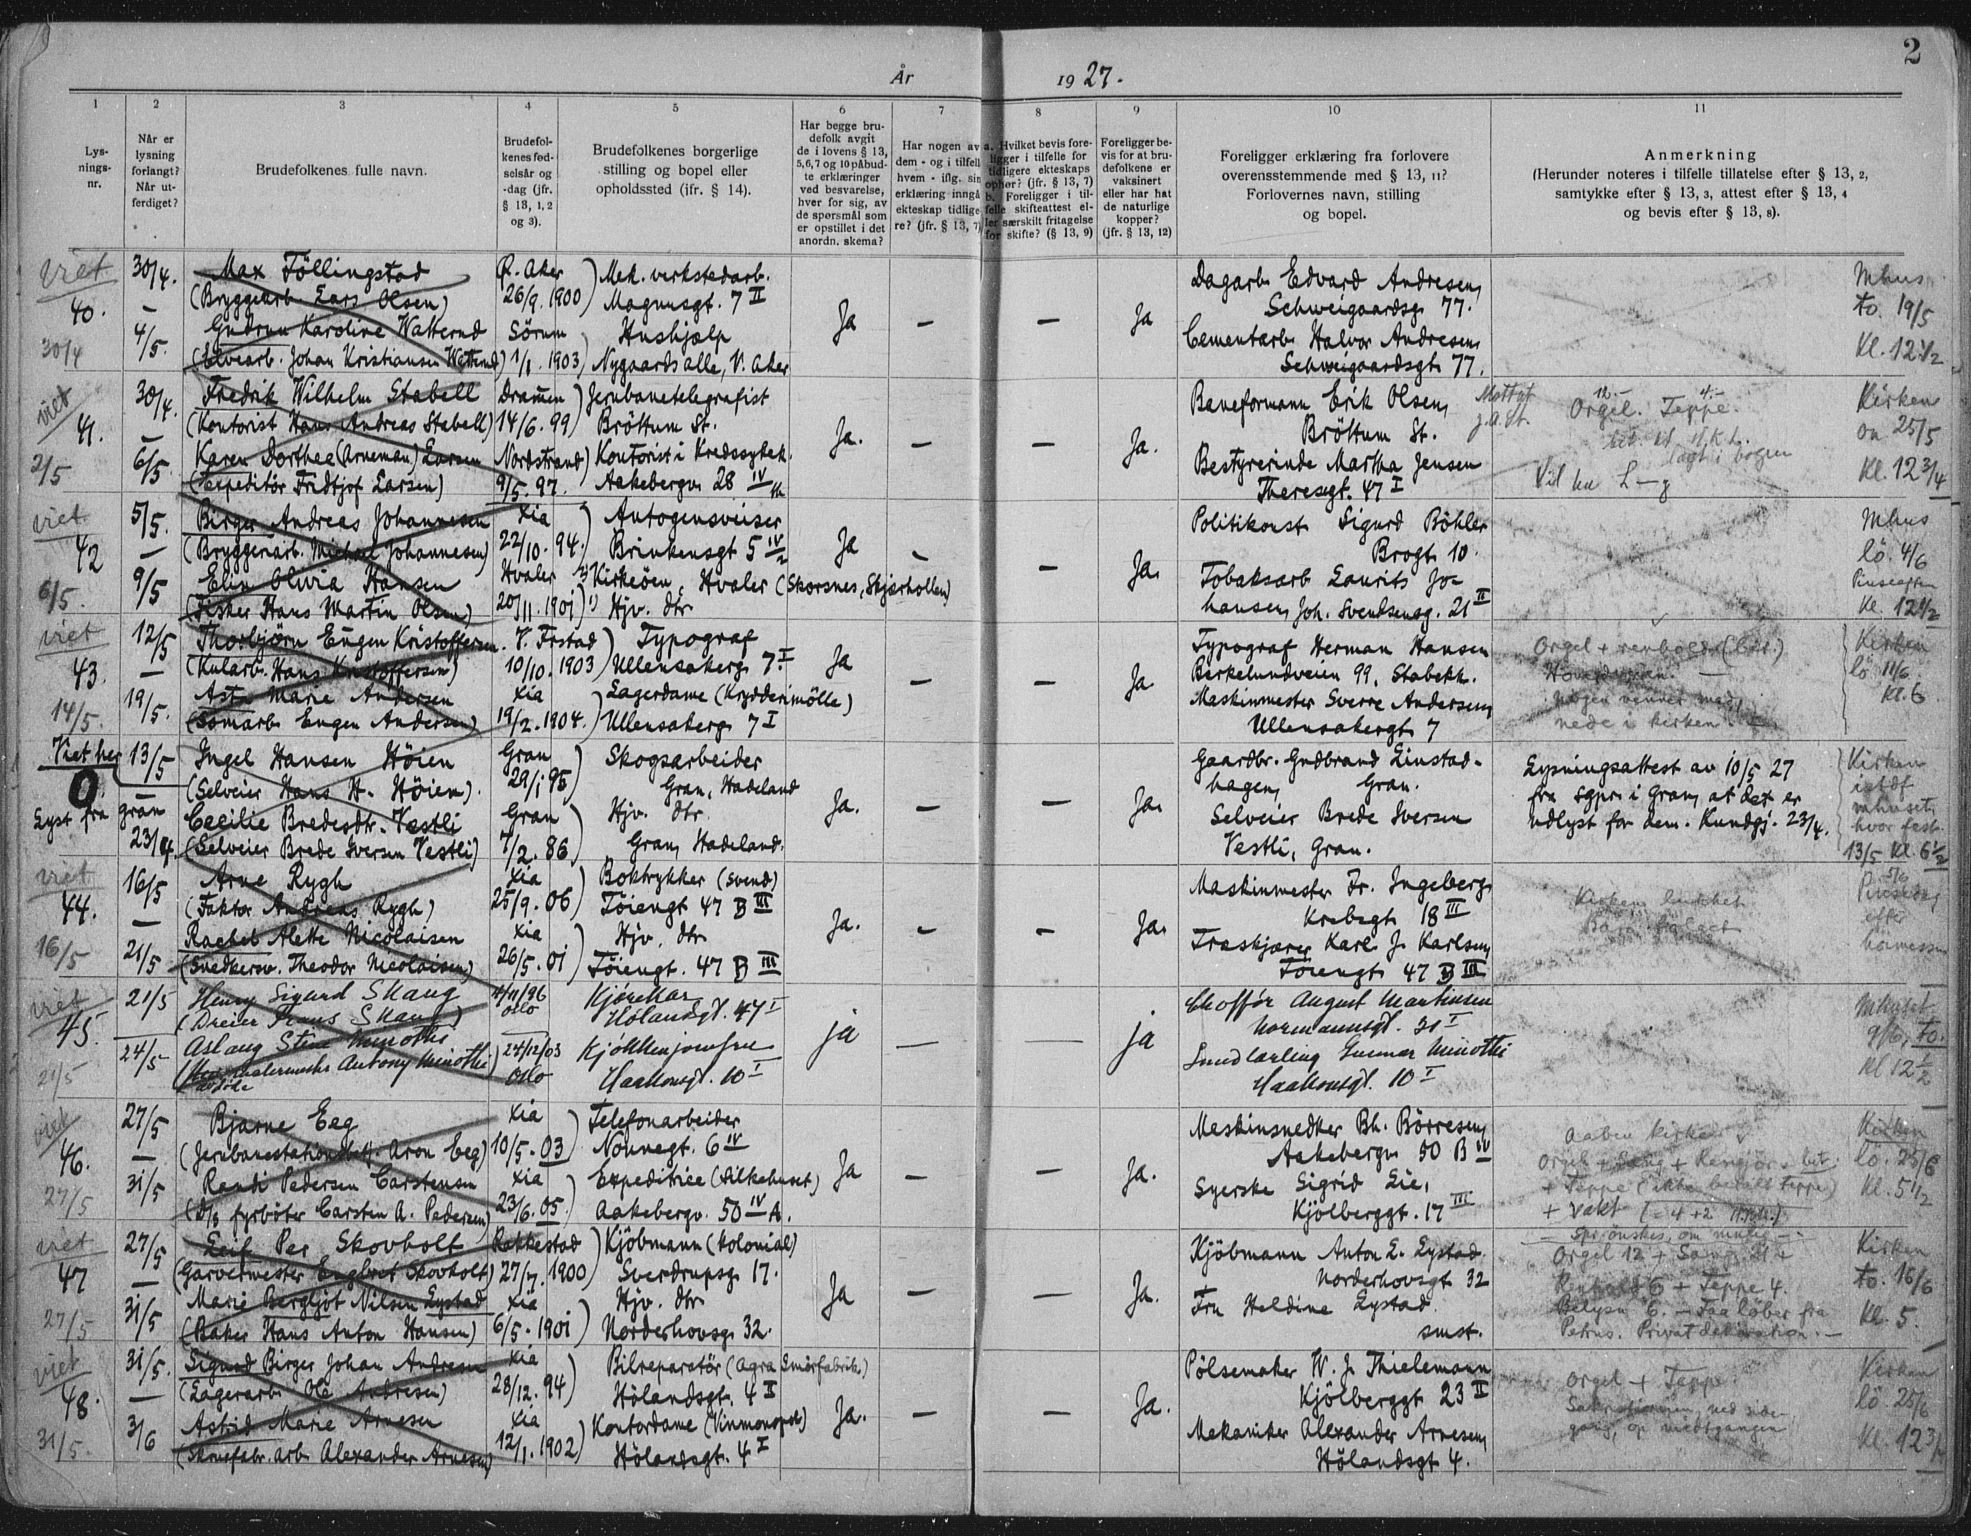 År 1927.
2
1 2 3 4 5 6 7 8 9 10 11
Lys-
nings-
nr.
Når er
lysning
forlangt?
Når ut-
ferdiget?
Brudefolkenes fulle navn.
Brudefol-
kenes fød-
selsår og
-dag (jfr.
§ 13, 1, 2
og 3).
Brudefolkenes borgerlige
stilling og bopel eller
opholdssted (jfr. § 14).
Har begge bru-
defolk avgit
de i lovens § 13,
5,6,7 og 10 påbud-
te erklæringer
ved besvarelse,
hver for sig, av
de spørsmål som
er opstillet i det
anordn. skema?
Har nogen av
dem - og i tilfelle
hvem - iflg. sin
erklæring inngå
ekteskap tidlige-
re? (jfr. § 13, 7)
a. Hvilket bevis fore-
ligger i tilfelle for
tidligere ekteskaps
ophør? (jfr. § 13, 7)
b. Foreligger i til-
felle skifteattest el-
ler særskilt fritagelse
for skifte? (§ 13, 9)
Foreligger be-
vis for at bru-
defolkene er
vaksinert
eller har hat
de naturlige
kopper?
(jfr. § 13, 12)
Foreligger erklæring fra forlovere
overensstemmende med § 13, 11?
Forlovernes navn, stilling
og bopel.
Anmerkning
(Herunder noteres i tilfelle tillatelse efter § 13, 2,
samtykke efter § 13, 3, attest efter § 13, 4
og bevis efter § 13, 8).
viet
40.
30/4
30/4.
—
4/5.
Max Föllingstad
(Bryggearb. Lars Olsen)
Gudrun Karoline Watterud
(Elvearb. Johan Kristiansen Watterud)
Ö. Aker
26/9. 1900
Sörum
1/1. 1903
Mek. verkstedarb.
Magnusgt. 7 II
Hushjælp
Nygaards alle, V. Aker
Ja
—
—
Ja
Dagarb. Edvard Andresen,
Schweigaardsg. 77.
Cementarb. Halvor Andresen,
Schweigaardsgt. 77.
Mhus
to. 19/5
Kl. 12 1/2
viet
41.
2/5
30/4.
—
6/5
Fredrik Wilhelm Stabell
(Kontorist Hans Andreas Stabell)
Karen Dorthea (Arneman) Larsen
(Expeditör Fridtjof Larsen)
Drammen
14/6. 99
Nordstrand
9/5. 97.
Jernbanetelegrafist
Bröttum St.
Kontorist i Kredssykek.
Aakebergv. 28 IV
Ja.
—
—
Ja.
Baneformann Erik Olsen,
Bröttum St.
Bestyrerinde Martha Jensen
Theresegt. 47 I
12.- 4.-
Orgel. Teppe.
lagt i bogen
Kirken
on 25/5
Kl. 12 3/4
viet
42
6/5.
5/5.
—
9/5
Birger Andreas Johannesen
(Bryggeriarb. Michael Johannesen)
Elin Olivia Hansen
(Fisker Hans Martin Olsen)
Xia
22/10. 94.
Hvaler
20/11. 1901
Autogensveiser
Brinkensgt 5 IV
Kirkeöen, Hvaler (Skorsnes, Skjærhollen)
Hjv. dtr
Ja
—
—
Ja.
Politikonst Sigurd Böhler
Brogt. 10.
Tobaksarb. Laurits Jo-
hansen, Joh. Svendsensg. 21 II
Mhus
lö. 4/6
Pinseaften
Kl. 12 1/2
viet
43.
14/5.
12/5
—
19/5.
Thorbjörn Eugen Kristoffersen.
(Kularb. Hans Kristoffersen)
Asta Marie Andersen
(Sömarb. Eugen Andersen)
V. Frstad
10/10. 1903
Xia
19/2. 1904.
Typograf
Ullensakerg. 7 I
Lagerdame (Krydderimölle)
Ullensakerg. 7 I
Ja
—
—
Ja
Typograf Herman Hansen
Birkelundveien 99, Stabekk.
Maskinmester Sverre Andersen,
Ullensakergt. 7
Orgel + renhold (bet.)
nogen venner med,
nede i kirken.
Kirken
lö 11/6
Kl. 6
Viet her
0.
Lyst fra gran
13/5
—
23/4
Ingel Hansen Höien
(Selveier Hans H. Höien).
Cecilie Bredesdtr. Vestli
(Selveier Brede Iversen Vestli)
Gran
29/1 95
Gran
7/2. 86
Skogsarbeider
Gran, Hadeland
Hjv. dtr.
Gran, Hadeland.
Ja.
—
—
Ja.
Gaardbr. Gudbrand Linstad-
hagen, Gran.
Selveier Brede Iversen
Vestli, Gran.
Lysningsattest av 10/5 27
fra sgpr. i Gran, at det er
udlyst for dem. Kundgj. 23/4.
Kirken
istdf
mhuset,
hvor fest.
13/5 Kl. 6 1/2
viet
44.
16/5
16/5
—
21/5
Arne Rygh
(Faktor Andreas Rygh)
Rachel Alette Nicolaisen
(Snedkersv. Theodor Nicolaisen)
Xia
25/9. 06
Xia
26/5. 01
Boktrykker (svend)
Töiengt 47 B III
Hjv. dtr
Töiengt. 47 B III
Ja.
—
—
Ja.
Maskinmester Fr. Ingeberg,
Krebsgt. 18 III
Træskjærer Karl J. Karlsen,
Töiengt. 47 B III
Kirken lukket
5/6
Pinsedag
efter
höimessen
viet
45.
21/5
21/5
24/5
Henry Sigurd Skaug
(Dreier Frans Skaug)
Aslaug Stina Minothi
4/11/96
Oslo
24/12/03
Oslo
Kjörekar
Hölandsgt. 47 I
Kjökkenjomfru
Haakonsgt. 10 I
ja
—
—
ja
Chofför August Martinsen
Normannsgt. 31 I
Smedlærling Gunnar Minothi
Haakonsgt. 10 I
Mhuset
9/6, to.
Kl 12 1/2
viet
46.
27/5
27/5
—
31/5
Bjarne Eeg
(Jernbanestationsbetj. Aron Eeg)
Randi Pedersen Carstensen
(D/S fyrböter Carsten A. Pedersen)
Xia
10/5. 03
Xia
23/6. 05.
Telefonarbeider
Nonnegt. 6 IV
Expeditrice (Silkehuset)
Aakebergv. 50 IV A.
Ja
—
—
Ja.
Maskinsnedker Bh. Börresen,
Aakebergv. 50 B IV
Syerske Sigrid Lie,
Kjölberggt. 17 III
Aaben kirke
Orgel + Sang + Rengjör. bet.
+ Teppe (ikke betalt teppe)
+ vakt
Kirken
lö. 25/6
Kl. 5 1/2
viet
47
27/5
27/5
—
31/5
Leif Per Skovholt
(Garvermester Engbret Skovholt)
Marie Bergljot Nilsen Eystad
(Baker Hans Anton Hansen)
Rakkestad
27/7. 1900
Xia
6/5. 1901
Kjöbmann (kolonial)
Sverdrupsg. 17.
Hjv. dtr
Norderhovsg. 32.
Ja
—
—
Ja.
Kjöbmann Anton E. Eystad.
Norderhovsgt 32
Fru Heldine Eystad.
smst.
— Spr. önskes, om mulig —
Orgel 12 + Sang 21 +
Renhold 6 + Teppe 4.
Belysn 6. — Faa löber fra
Petrus. Privat dekoration. —
Kirken
to. 16/6
Kl. 5.
viet
48.
31/5.
31/5.
—
3/6
Sigurd Birger Johan Andresen
(Lagerarb. Ole Andresen)
Astrid Marie Arnesen
(Skruefabr. arb. Alexander Arnesen)
Xia
28/12. 94
Xia
12/1. 1902
Bilreparatör (Agra Smörfabrik)
Hölandsgt. 4 II
Kontordame (Vinmonopol)
Hölandsgt. 4 I
Ja.
—
—
Ja.
Pölsemaker W. J. Thielemann
Kjölberggt 23 II
Mekaniker Alexander Arnesen,
Hölandsgt 4.
Orgel + Teppe
Kirken
lö. 25/6
Kl. 12 3/4